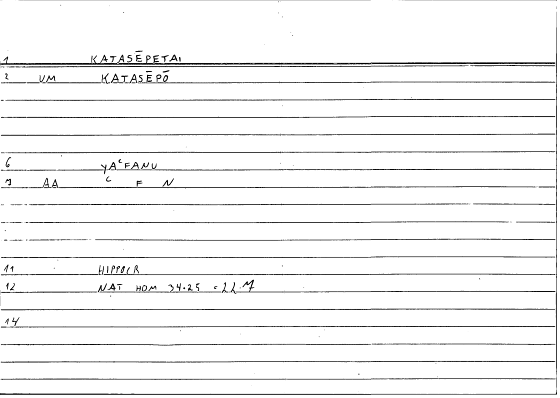 1 KATASĒPETAI
2 UM KATASĒPŌ
6 yAᶜFANU
7 AA ᶜ F N
11 HIPPOCR
12 NAT HOM 34.25 =
14